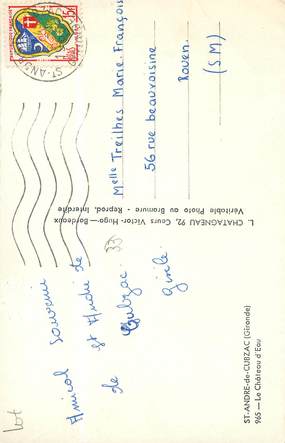 Amical Souvenir
et André de
de Cubzac
Gisèle
33
Lot
Melle Treilhes Marie-François
56 rue beauvoisine
Rouen.
(S M)
L. CHATAGNEAU 92, Cours Victor-Hugo—Bordeaux
Véritable Photo au Bromure - Reprod. Interdite
ST-ANDRE-de-CUBZAC (Gironde)
965 — Le Château d'Eau
ST-AND